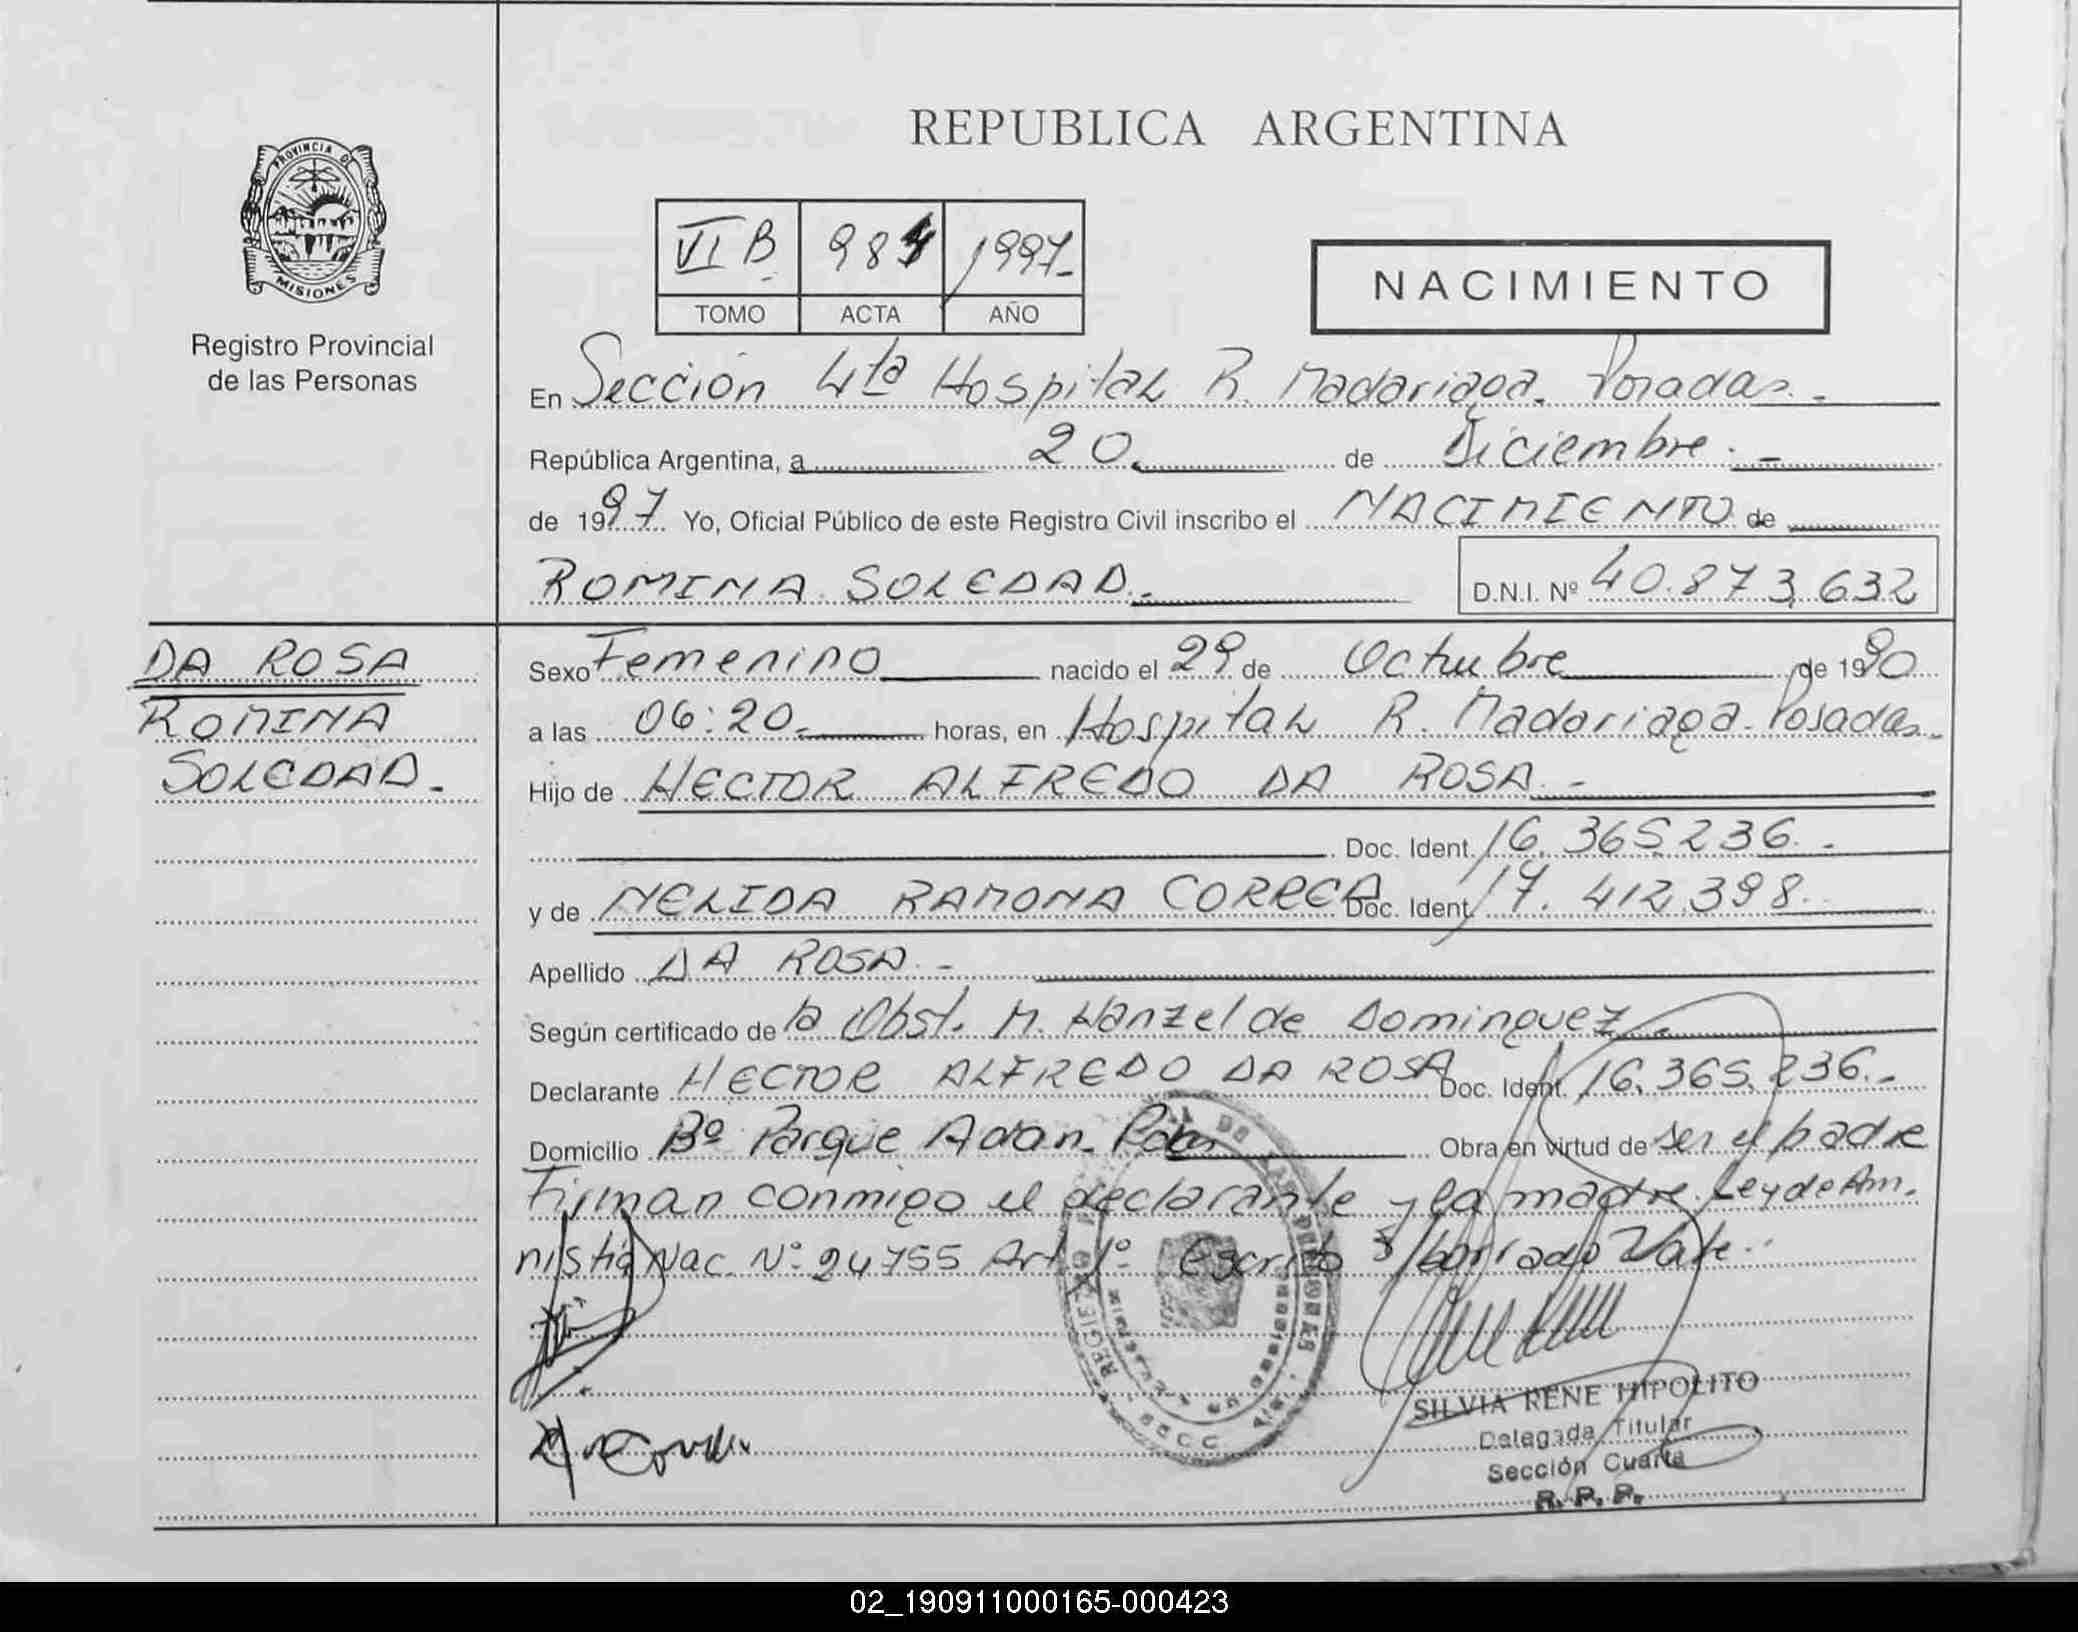 PROVINCIA DE
MISIONES
Registro Provincial
de las Personas
REPUBLICA ARGENTINA
VI B 984 1997.-
TOMO ACTA AÑO
NACIMIENTO
En Sección 4ta Hospital R. Madariaga. Posadas.-
República Argentina, a 20. de Diciembre.-
de 1997 Yo, Oficial Público de este Registro Civil inscribo el NACIMIENTO de
ROMINA SOLEDAD.- D.N.I. Nº 40.873.632
DA ROSA
ROMINA
SOLEDAD.-
Sexo Femenino nacido el 29 de Octubre de 1990
a las 06:20.- horas, en Hospital R. Madariaga. Posadas.-
Hijo de HECTOR ALFREDO DA ROSA.-
Doc. Ident. 16.365.236.-
y de NELIDA RAMONA CORREA Doc. Ident. 17.412.398.-
Apellido DA ROSA.-
Según certificado de la Obst. M. Hanzel de Dominguez.-
Declarante HECTOR ALFREDO DA ROSA Doc. Ident. 16.365.236.-
Domicilio Bº Parque Adan. Obra en virtud de ser el padre
Firman conmigo el declarante y la madre. Ley de Am.
nistia Nac. Nº 24755 Art 1º Escrito s/borrado Vale.-
SILVIA RENE HIPOLITO
Delegada Titular
Sección Cuarta
R. P. P.
02_190911000165-000423